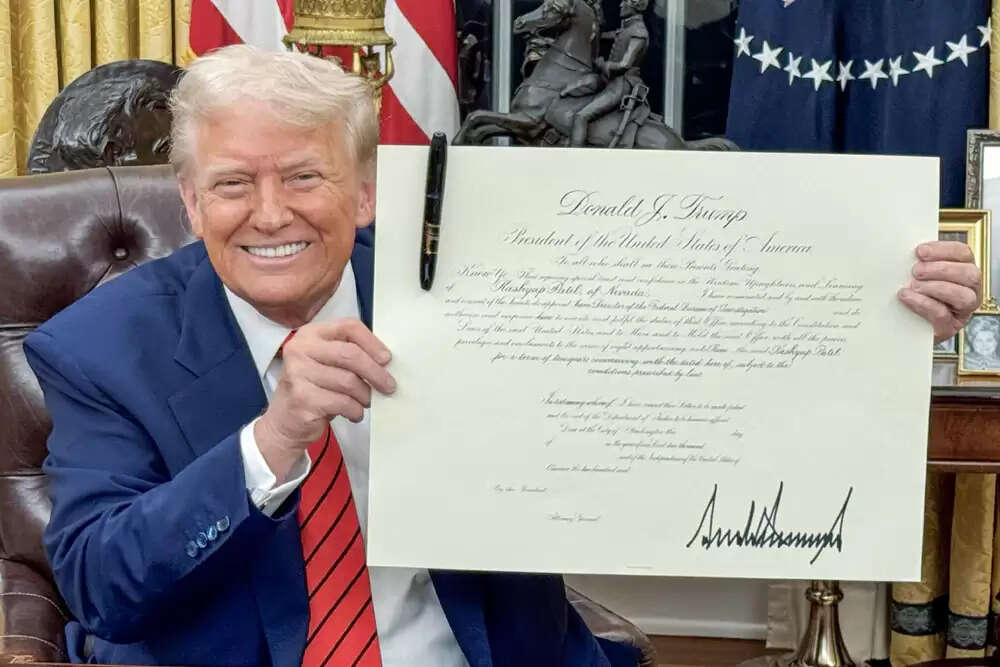 Donald J. Trump
President of the United States of America
To all who shall see these Presents Greeting
Know Ye That reposing special trust and confidence in the and
Kashyap Patel, of Nevada, I have nominated and by and with the advice
and consent of the Senate do appoint him Director of the Federal Bureau of Investigation and do
authorize and empower him to execute and fulfil the duties of that Office according to the Constitution and
Laws of the said United States and to Have and to Hold the said Office with all the powers
privileges and to the same of right appertaining unto him the said Kashyap Patel
for a term of ten years commencing with the date here of, subject to the
conditions prescribed by law.
In testimony whereof I have caused these Letters to be made patent
and the seal of the Department of Justice to be hereunto affixed
Done at the City of Washington this day
of in the year of our Lord two thousand
and of the Independence of the United States of
America the two hundred and
By the President
Attorney General